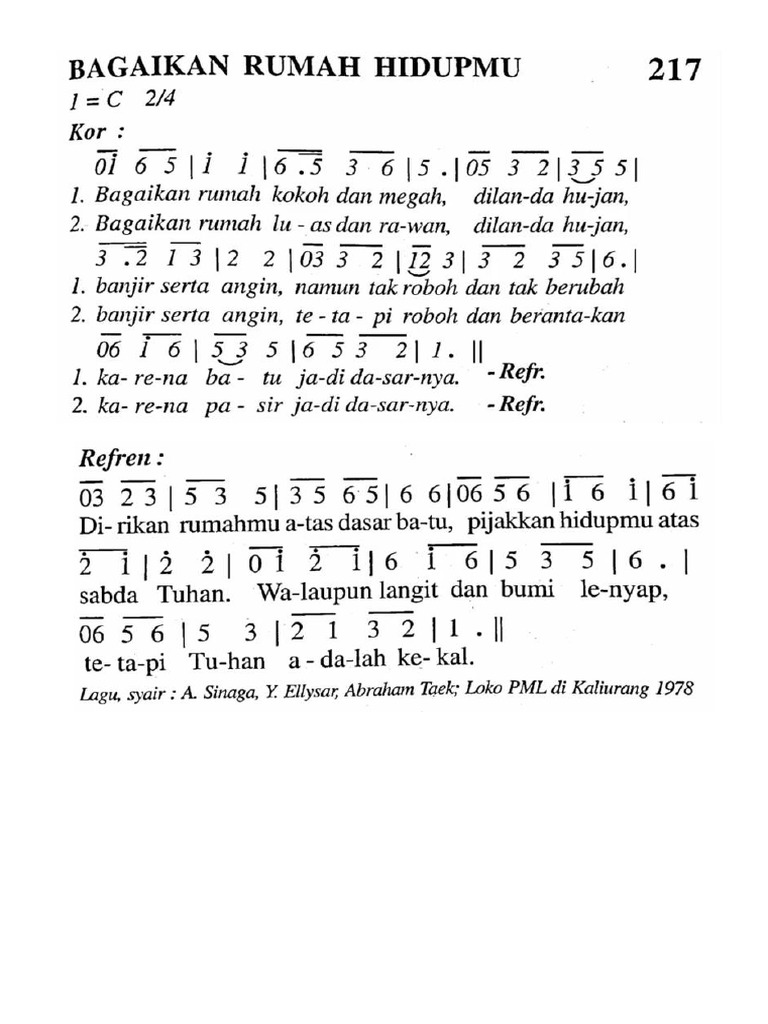 BAGAIKAN RUMAH HIDUPMU 217
1 = C 2/4
Kor :
0i 6 5 | i i | 6 .5 3 6 | 5 . | 05 3 2 | 3 5 5 |
1. Bagaikan rumah kokoh dan megah, dilan-da hu-jan,
2. Bagaikan rumah lu - as dan ra-wan, dilan-da hu-jan,
3 .2 1 3 | 2 2 | 03 3 2 | 12 3 | 3 2 3 5 | 6 . |
1. banjir serta angin, namun tak roboh dan tak berubah
2. banjir serta angin, te - ta - pi roboh dan beranta-kan
06 i 6 | 5 3 5 | 6 5 3 2 | 1 . ||
1. ka- re-na ba - tu ja-di da-sar-nya. - Refr.
2. ka- re-na pa - sir ja-di da-sar-nya. - Refr.
Refren :
03 2 3 | 5 3 5 | 3 5 6 5 | 6 6 | 06 5 6 | i 6 i | 6 i
Di- rikan rumahmu a-tas dasar ba-tu, pijakkan hidupmu atas
2̇ i | 2̇ 2̇ | 0 i 2̇ i | 6 i 6 | 5 3 5 | 6 . |
sabda Tuhan. Wa-laupun langit dan bumi le-nyap,
06 5 6 | 5 3 | 2 1 3 2 | 1 . ||
te- ta-pi Tu-han a - da-lah ke- kal.
Lagu, syair : A. Sinaga, Y. Ellysar, Abraham Taek; Loko PML di Kaliurang 1978